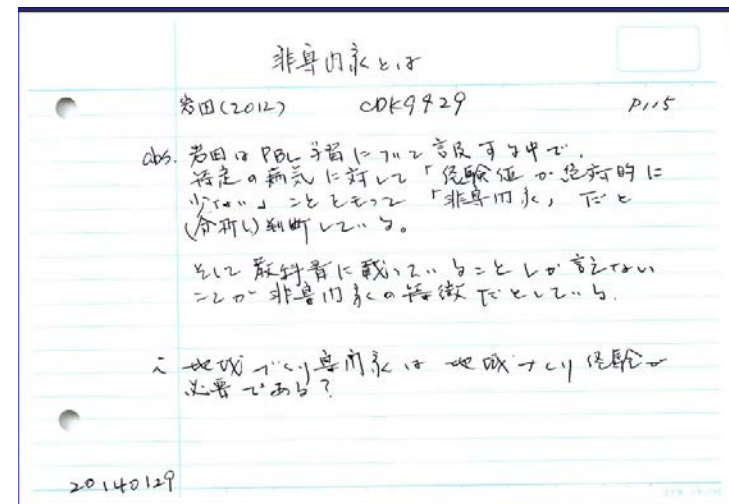 非専門家とは
岩田(2012) CDK9429 P115
abs. 岩田はPBL学習について言及する中で、
特定の病気に対して「経験値が絶対的に
少ない」ことをもって「非専門家」だと
(分析し)判断している。
そして教科書に載っていることしか言えない
ことが非専門家の特徴だとしている。
i 地域づくり専門家は地域づくり経験が
必要である?
20140129